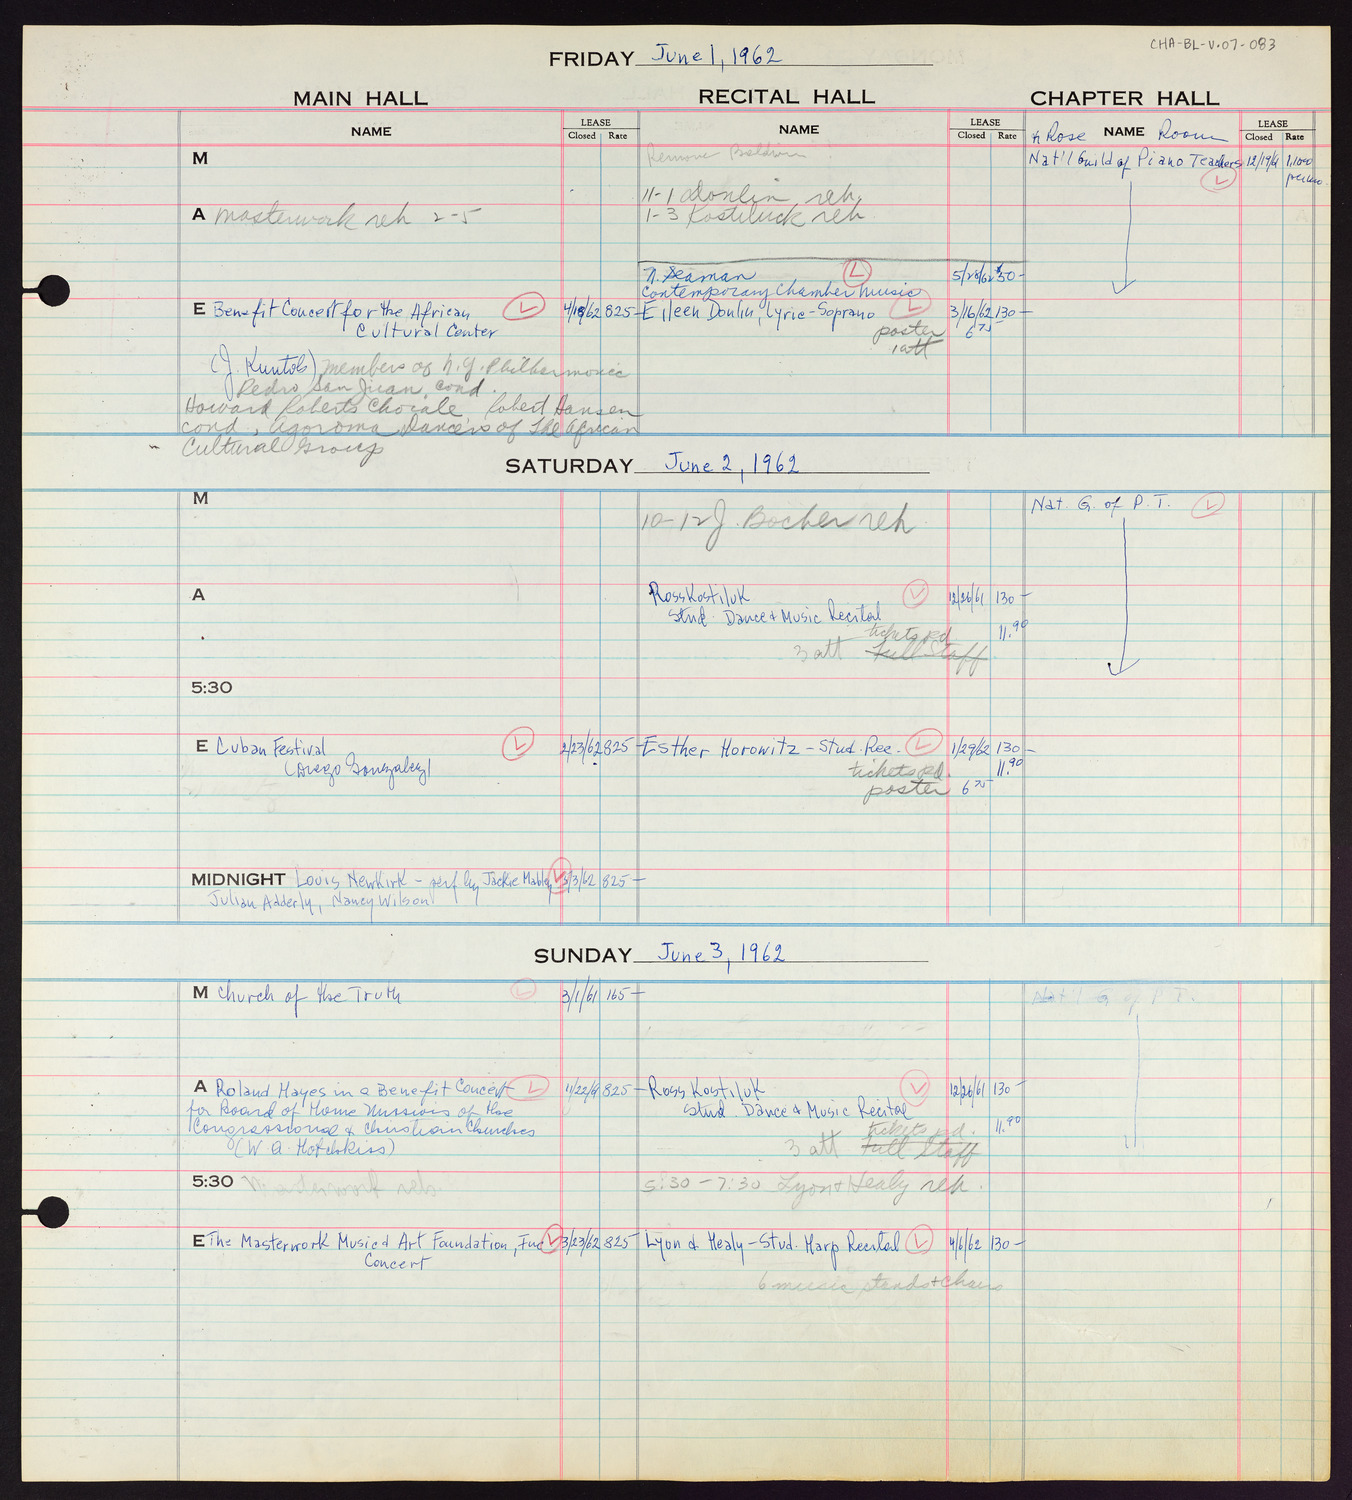 CHA-BL-V.07-083
FRIDAY June 1, 1962
MAIN HALL RECITAL HALL CHAPTER HALL
NAME LEASE Closed Rate NAME LEASE Closed Rate & Rose NAME Room LEASE Closed Rate
M Remove Baldwin Nat'l Guild of Piano Teachers 12/19/61
11-1 Donlin reh
A Masterwork reh 2-5 1-3 Kostiluck reh
N. Seaman 5/28/62 $50-
Contemporary Chamber Music
E Benefit Concert for the African 4/18/62 825- Eileen Donlin, Lyric-Soprano 3/16/62 130-
Cultural Center poster 6 75
1 att
(J. Kuntols) members of N.Y. Philharmonic
Pedro San Juan, cond.
Howard Roberts Chorale Robert Hansen
cond, Agoroma Dancers of the African
Cultural Group
SATURDAY June 2, 1962
M Nat. G. of P.T.
10-12 J. Bocher reh
A Ross Kostiluk 12/26/61 130-
Stud. Dance & Music Recital
tickets pd 11.90
3 att Full Staff
5:30
E Cuban Festival 2/23/62 825- Esther Horowitz - Stud. Rec. 1/29/62 130-
(Diego Gonzalez) tickets pd. 11.90
poster 6 75
MIDNIGHT Louis Newkirk - perf by Jackie Mabley 3/3/62 825-
Julian Adderly, Nancy Wilson
SUNDAY June 3, 1962
M Church of the Truth 3/1/61 165- Nat'l G of P T.
A Roland Hayes in a Benefit Concert 11/22/61 825- Ross Kostiluk 12/26/61 130-
for Board of Home Missions of the Stud Dance & Music Recital
Congregational & Christian Churches tickets pd. 11.90
(W. A. Hotchkiss) 3 att Full Staff
5:30 Masterwork reh. 5:30-7:30 Lyon & Healy reh.
E The Masterwork Music & Art Foundation, Inc 3/23/62 825- Lyon & Healy - Stud. Harp Recital 4/6/62 130-
Concert
6 music stands + chairs